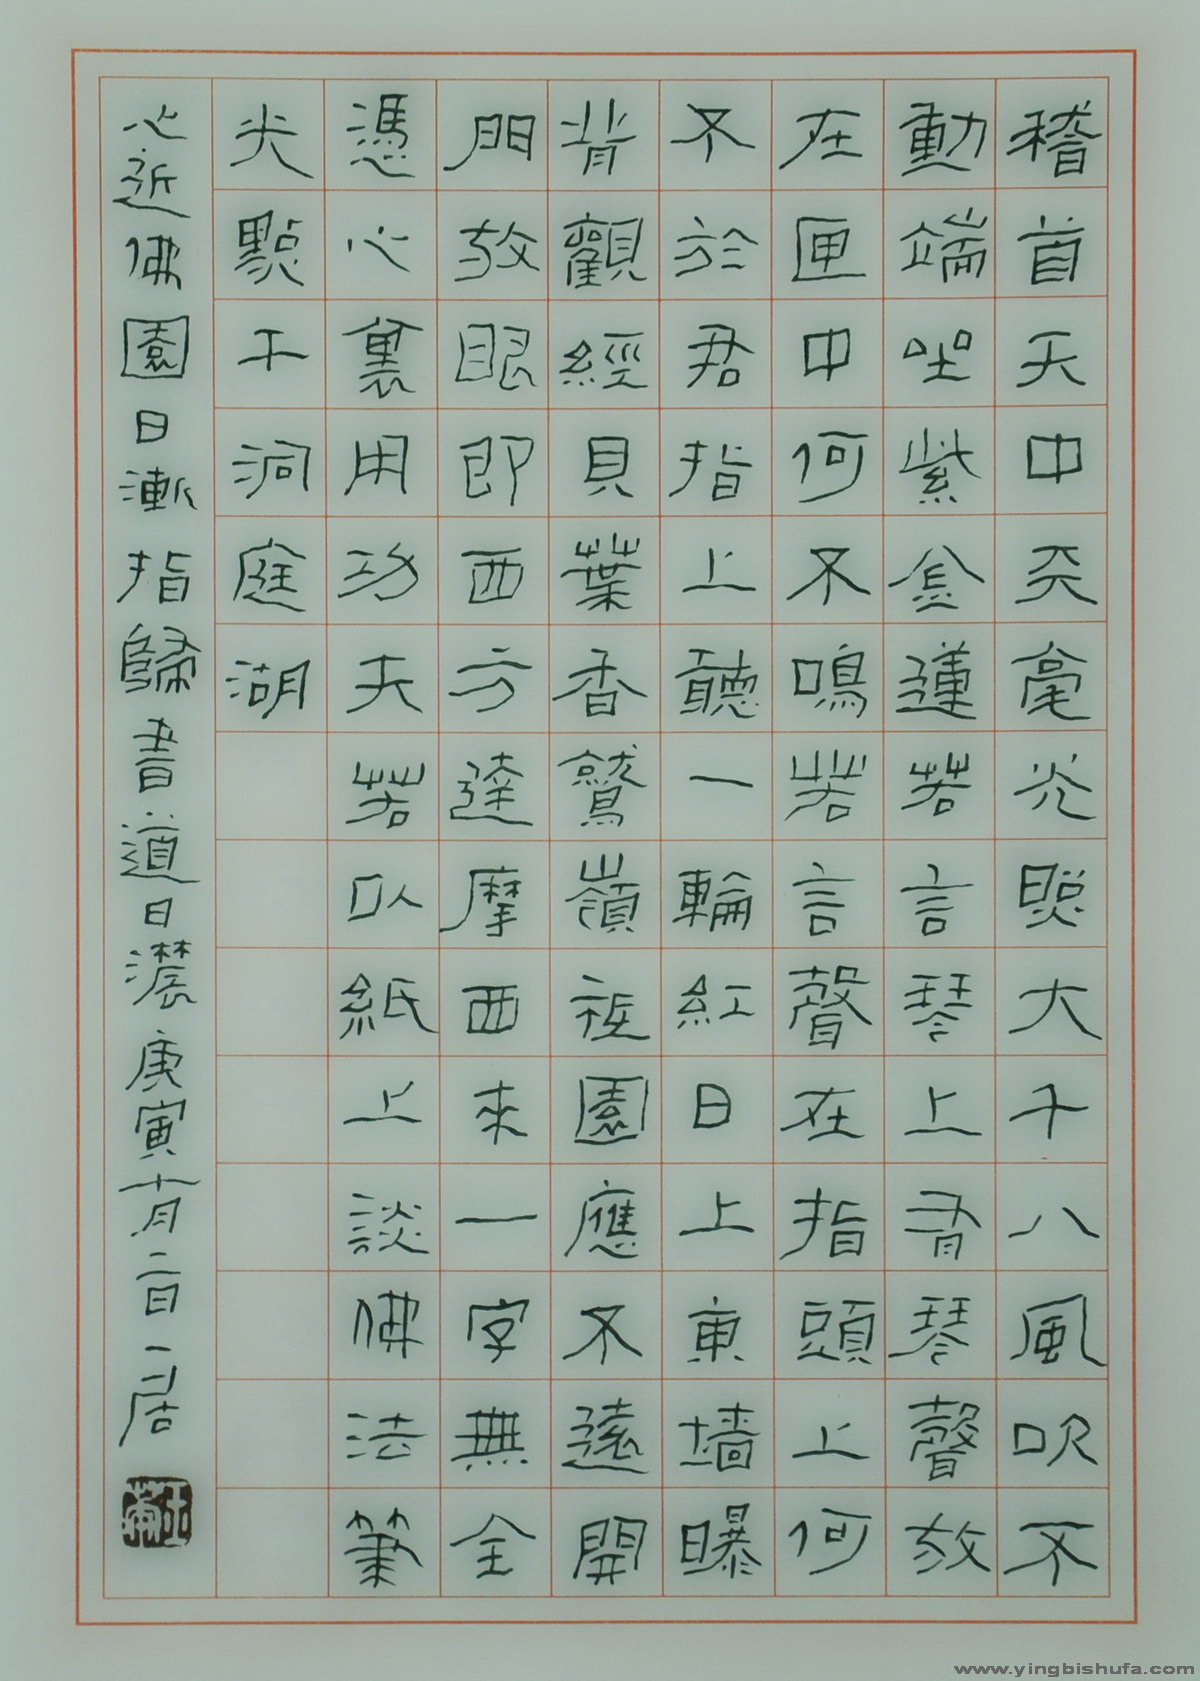 稽首天中天毫光照大千八風吹不
動端坐紫金蓮若言琴上有琴聲放
在匣中何不鳴若言聲在指頭上何
不於君指上聽一輪紅日上東墻曝
背觀經貝葉香鷲嶺祗園應不遠開
門放眼即西方達摩西來一字無全
憑心裏用功夫若以紙上談佛法筆
尖點干洞庭湖
心近佛園日漸指歸書道日濃庚寅十月二日居
www.yingbishufa.com